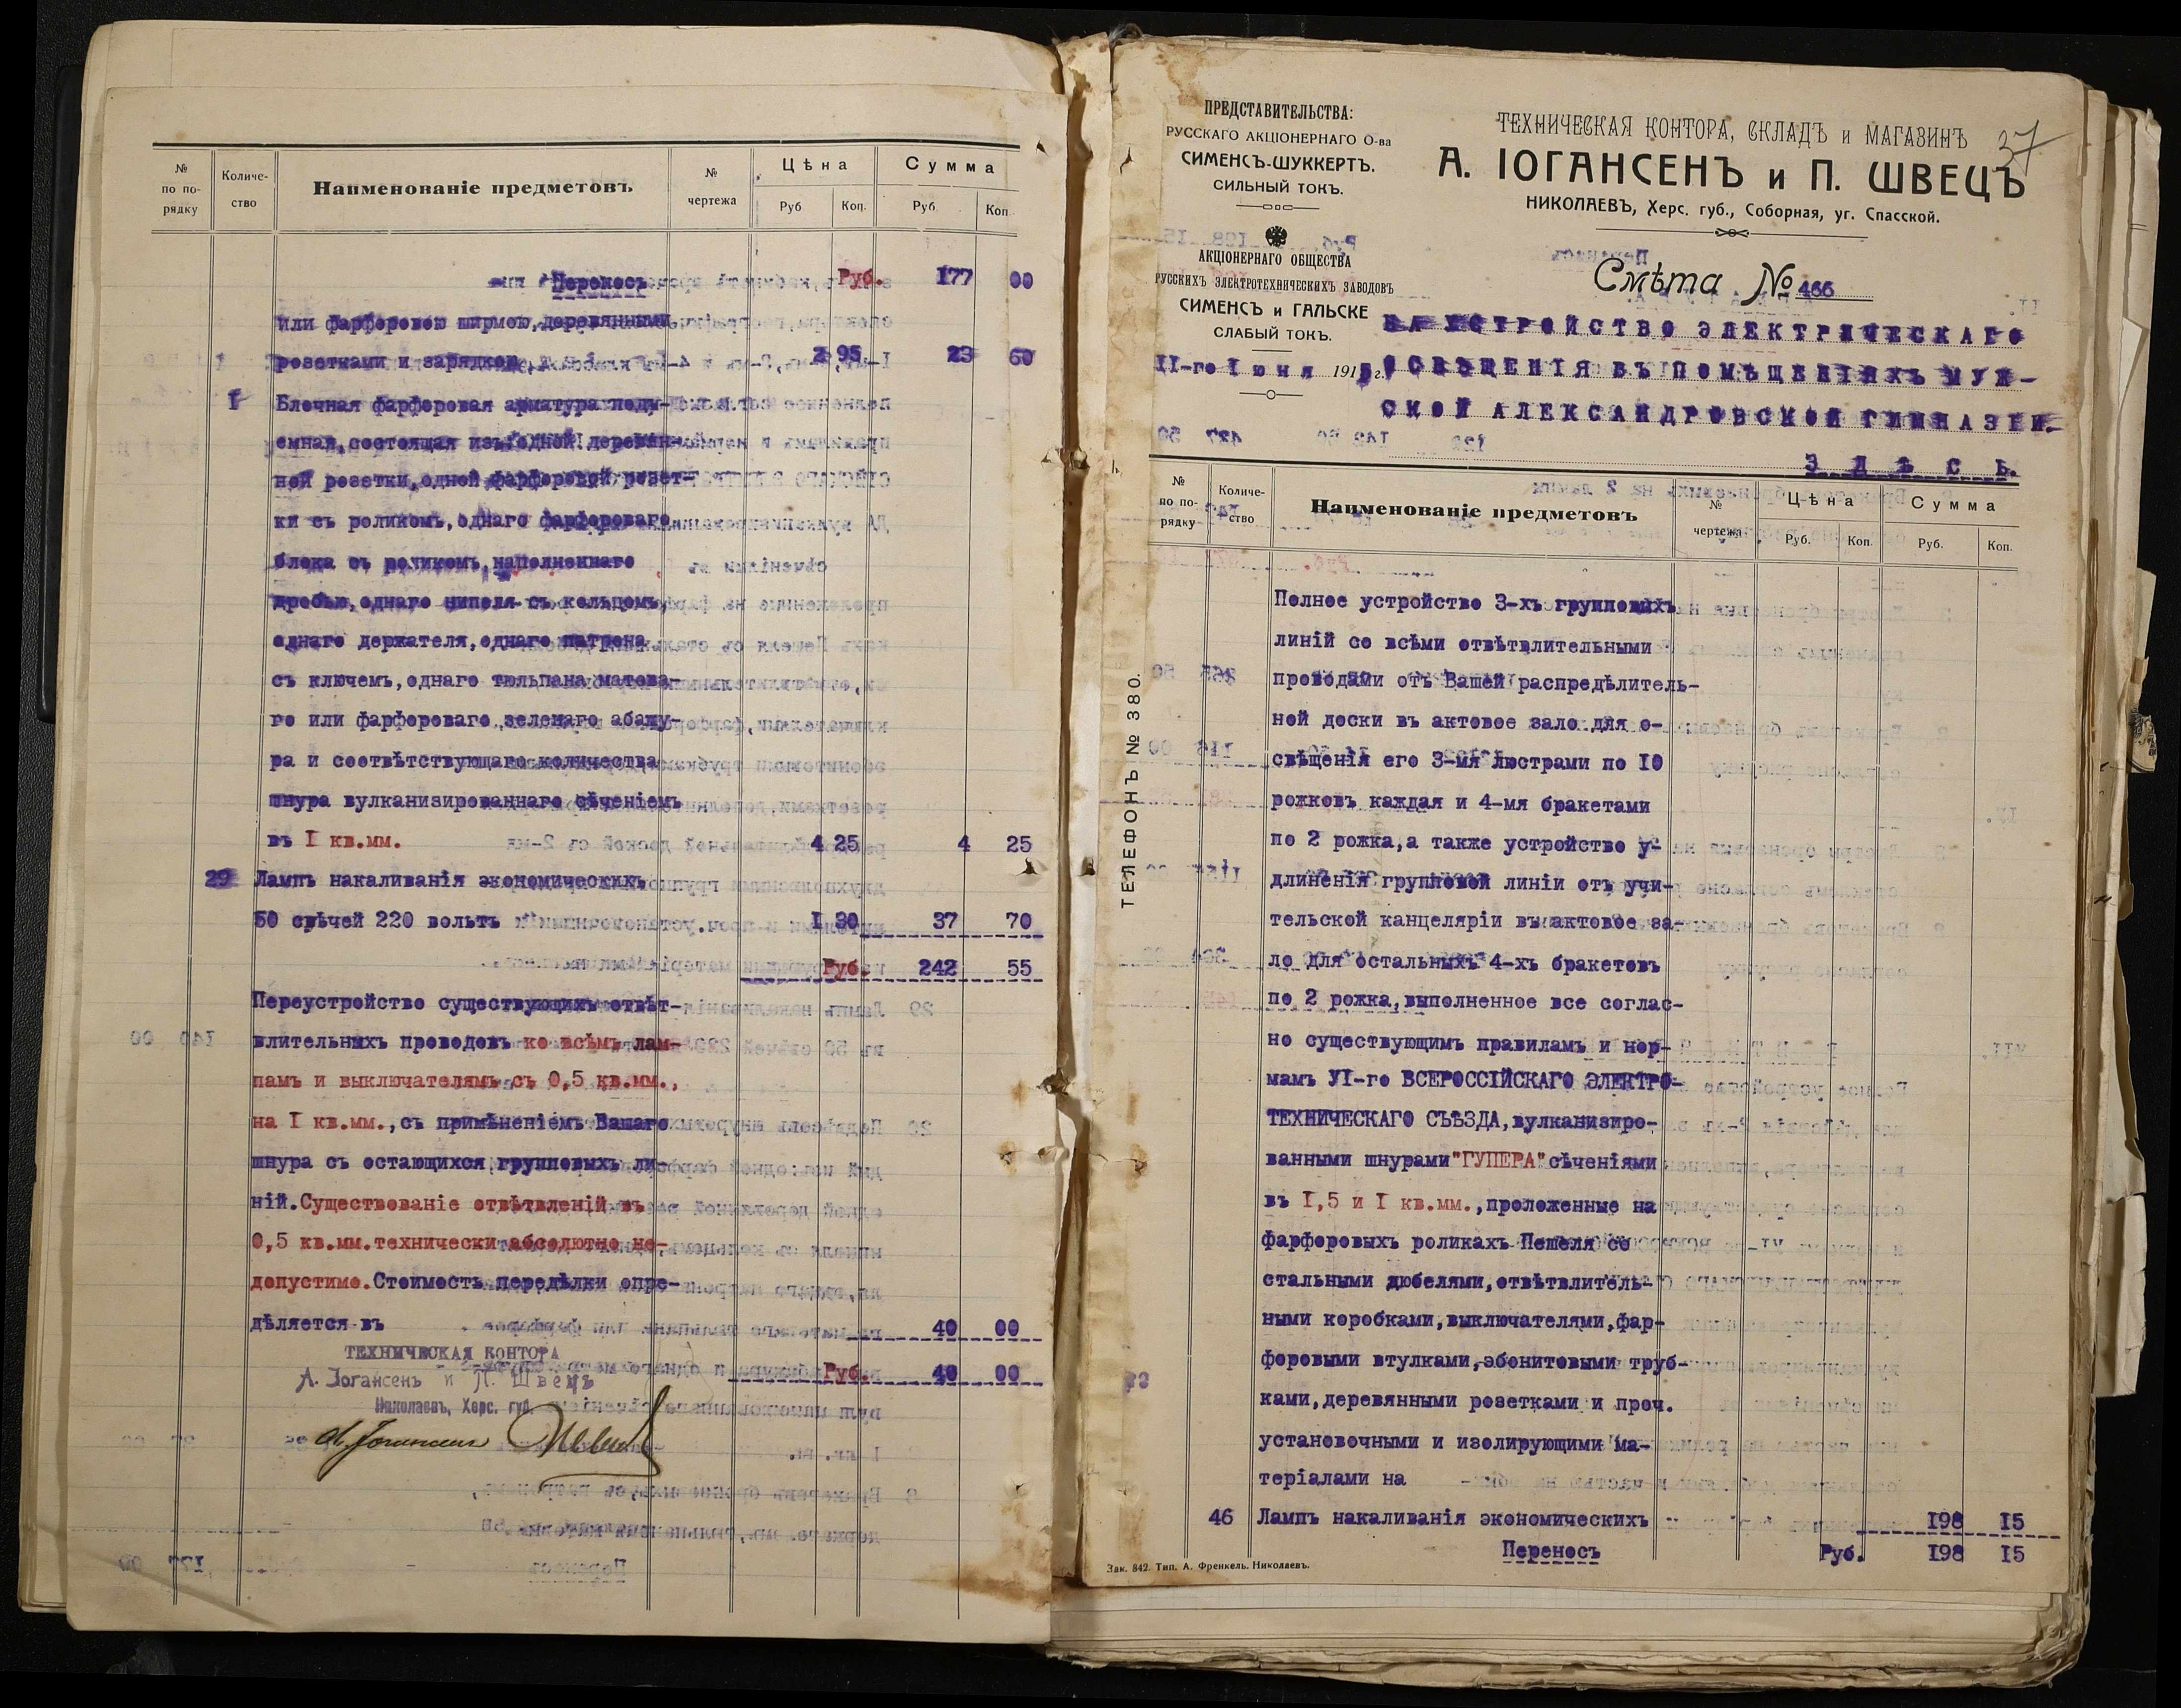 № по порядку
Количество
Наименованіе предметовъ
№ чертежа
Цѣна
Сумма
Руб
Коп.
Руб
Коп
Переносъ Руб. 177 00
или фарфоровою ширмою, деревянными
розетками и зарядкою, 2 95 23 60
1 Блочная фарфоровая арматура подъ-
емная, состоящая изъ одной деревян-
ной розетки, одной фарфоровой розет-
ки съ роликомъ, однаго фарфороваго
блока съ роликомъ, наполненнаго
дробью, однаго нипеля съ кольцомъ,
однаго держателя, однаго патрона
съ ключемъ, однаго тюльпана матова-
го или фарфороваго зеленаго абажу-
ра и соотвѣтствующаго количества
шнура вулканизированнаго сѣченіемъ
въ I кв.мм. 4 25 4 25
29 Лампъ накаливанія экономическихъ
50 свѣчей 220 вольтъ I 30 37 70
Руб. 242 55
Переустройство существующихъ отвѣт-
влительныхъ проводовъ ко всѣмъ лам-
памъ и выключателямъ съ 0,5 кв.мм.,
на I кв.мм., съ примѣненіемъ Вашаго
шнура съ остающихся групповыхъ ли-
ній. Существованіе отвѣтвленій въ
0,5 кв.мм. технически абсолютно не-
допустимо. Стоимость передѣлки опре-
дѣляется въ 40 00
Руб. 40 00
ТЕХНИЧЕСКАЯ КОНТОРА
А. Іогансенъ и П. Швецъ
Николаевъ, Херс. губ.
37
ПРЕДСТАВИТЕЛЬСТВА:
РУССКАГО АКЦІОНЕРНАГО О-ва
СИМЕНСЪ-ШУККЕРТЪ.
СИЛЬНЫЙ ТОКЪ.
АКЦІОНЕРНАГО ОБЩЕСТВА
РУССКИХЪ ЭЛЕКТРОТЕХНИЧЕСКИХЪ ЗАВОДОВЪ
СИМЕНСЪ и ГАЛЬСКЕ
СЛАБЫЙ ТОКЪ.
II-го Іюня 1915 г.
ТЕЛЕФОНЪ № 380.
ТЕХНИЧЕСКАЯ КОНТОРА, СКЛАДЪ и МАГАЗИНЪ
А. ІОГАНСЕНЪ и П. ШВЕЦЪ
НИКОЛАЕВЪ, Херс. губ., Соборная, уг. Спасской.
Смѣта № 466
НА УСТРОЙСТВО ЭЛЕКТРИЧЕСКАГО
ОСВѢЩЕНІЯ ВЪ ПОМѢЩЕНІЯХЪ МУЖ-
СКОЙ АЛЕКСАНДРОВСКОЙ ГИМНАЗІИ.-
ЗДѢСЬ.
№ по порядку
Количество
Наименованіе предметовъ
№ чертежа
Цѣна
Сумма
Руб.
Коп.
Руб.
Коп.
Полное устройство 3-хъ групповыхъ
линій со всѣми отвѣтвлительными
проводами отъ Вашей распредѣлитель-
ной доски въ актовое зало для о-
свѣщенія его 3-мя люстрами по IO
рожковъ каждая и 4-мя бракетами
по 2 рожка, а также устройство у-
длиненія групповой линіи отъ учи-
тельской канцеляріи въ актовое за-
ло для остальныхъ 4-хъ бракетовъ
по 2 рожка, выполненное все соглас-
но существующимъ правиламъ и нор-
мамъ УІ-го ВСЕРОССІЙСКАГО ЭЛЕКТРО-
ТЕХНИЧЕСКАГО СЪѢЗДА, вулканизиро-
ванными шнурами "ГУПЕРА" сѣченіями
въ I,5 и I кв.мм., проложенные на
фарфоровыхъ роликахъ Пешеля со
стальными дюбелями, отвѣтвлитель-
ными коробками, выключателями, фар-
форовыми втулками, эбонитовыми труб-
ками, деревянными розетками и проч.
установочными и изолирующими ма-
теріалами на
46 Лампъ накаливанія экономическихъ 198 15
Переносъ Руб. 198 15
Зак. 842. Тип. А. Френкель. Николаевъ.